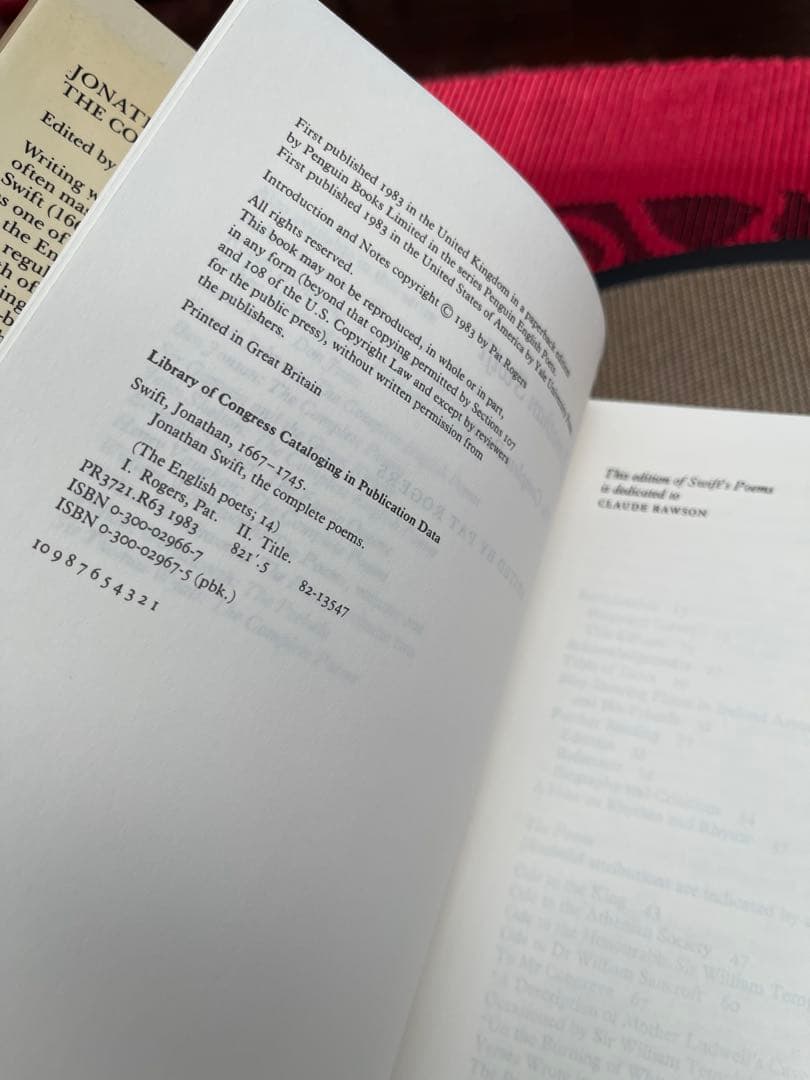 JONAT
THE CO
Edited by
Writing w
often ma
Swift (166
s one of
the En
regul
h of
ing
-b
First published 1983 in the United Kingdom in a paperback edition
by Penguin Books Limited in the series Penguin English Poets
First published 1983 in the United States of America by Yale University
Introduction and Notes copyright © 1983 by Pat Rogers
All rights reserved.
This book may not be reproduced, in whole or in part,
in any form (beyond that copying permitted by Sections 107
and 108 of the U.S. Copyright Law and except by reviewers
for the public press), without written permission from
the publishers.
Printed in Great Britain
Library of Congress Cataloging in Publication Data
Swift, Jonathan, 1667–1745.
Jonathan Swift, the complete poems.
(The English poets; 14)
I. Rogers, Pat. II. Title.
PR3721.R63 1983 821'.5 82-13547
ISBN 0-300-02966-7
ISBN 0-300-02967-5 (pbk.)
10 9 8 7 6 5 4 3 2 1
This edition of Swift's Poems
is dedicated to
CLAUDE RAWSON